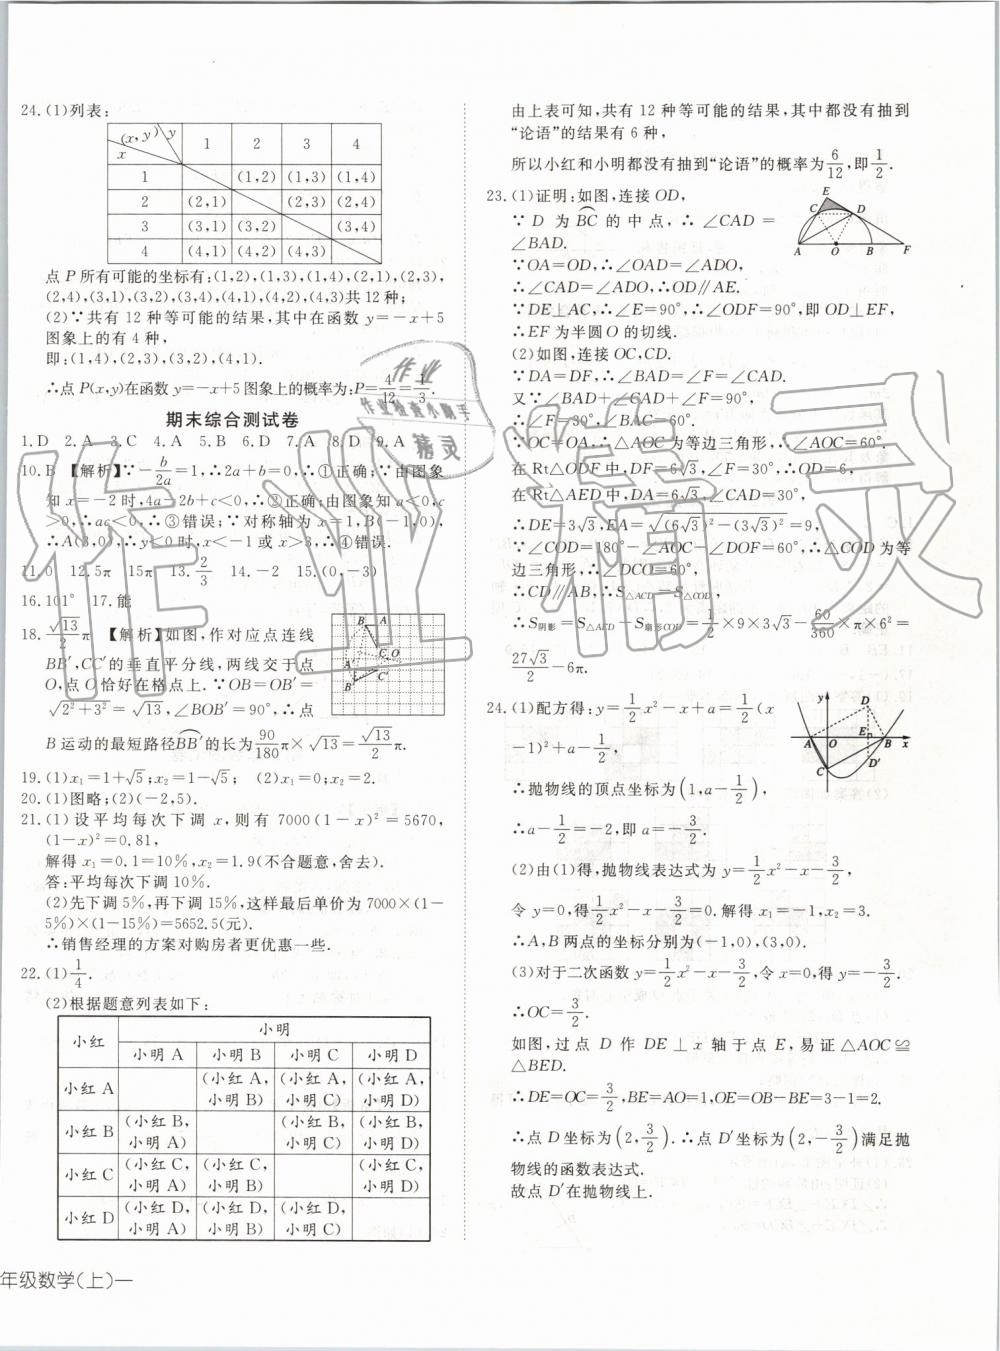 24.(1)列表:
(x,y) y
x
1 2 3 4
1 (1,2) (1,3) (1,4)
2 (2,1) (2,3) (2,4)
3 (3,1) (3,2) (3,4)
4 (4,1) (4,2) (4,3)
点 P 所有可能的坐标有:(1,2),(1,3),(1,4),(2,1),(2,3),
(2,4),(3,1),(3,2),(3,4),(4,1),(4,2),(4,3)共 12 种;
(2)∵共有 12 种等可能的结果,其中在函数 y=-x+5
图象上的有 4 种,
即:(1,4),(2,3),(3,2),(4,1).
∴点 P(x,y)在函数 y=-x+5 图象上的概率为:P=4/12=1/3.
期末综合测试卷
1.D 2.A 3.C 4.A 5.B 6.D 7.A 8.D 9.A
10.B 【解析】∵-b/2a=1,∴2a+b=0,∴①正确;∵由图象
知 x=-2 时,4a-2b+c<0,∴②正确;由图象知 a<0,c
>0,∴ac<0,∴③错误;∵对称轴为 x=1,B(-1,0),
∴A(3,0),∴y<0 时,x<-1 或 x>3,∴④错误.
11.0 12.5π 15π 13.2/3 14.-2 15.(0,-3)
16.101° 17.能
18.√13/2π 【解析】如图,作对应点连线
BB′,CC′的垂直平分线,两线交于点
O,点 O 恰好在格点上.∵OB=OB′=
√(2²+3²)=√13,∠BOB′=90°,∴点
B 运动的最短路径BB′的长为90/180π×√13=√13/2π.
B A
C O
A′ C′
B′
19.(1)x₁=1+√5;x₂=1-√5; (2)x₁=0;x₂=2.
20.(1)图略;(2)(-2,5).
21.(1)设平均每次下调 x,则有 7000(1-x)²=5670,
(1-x)²=0.81,
解得 x₁=0.1=10%,x₂=1.9(不合题意,舍去).
答:平均每次下调 10%.
(2)先下调 5%,再下调 15%,这样最后单价为 7000×(1-
5%)×(1-15%)=5652.5(元).
∴销售经理的方案对购房者更优惠一些.
22.(1)1/4.
(2)根据题意列表如下:
小红 小明
小明 A 小明 B 小明 C 小明 D
小红 A (小红 A,小明 B) (小红 A,小明 C) (小红 A,小明 D)
小红 B (小红 B,小明 A) (小红 B,小明 C) (小红 B,小明 D)
小红 C (小红 C,小明 A) (小红 C,小明 B) (小红 C,小明 D)
小红 D (小红 D,小明 A) (小红 D,小明 B) (小红 D,小明 C)
年级数学(上)—
由上表可知,共有 12 种等可能的结果,其中都没有抽到
“论语”的结果有 6 种,
所以小红和小明都没有抽到“论语”的概率为6/12,即1/2.
23.(1)证明:如图,连接 OD,
∵ D 为BC的中点,∴∠CAD=
∠BAD.
∵OA=OD,∴∠OAD=∠ADO,
∴∠CAD=∠ADO,∴OD∥AE.
∵DE⊥AC,∴∠E=90°,∴∠ODF=90°,即 OD⊥EF,
∴EF 为半圆 O 的切线.
E
C D
A O B F
(2)如图,连接 OC,CD.
∵DA=DF,∴∠BAD=∠F=∠CAD.
又∵∠BAD+∠CAD+∠F=90°,
∴∠F=30°,∠BAC=60°.
∵OC=OA,∴△AOC 为等边三角形,∴∠AOC=60°.
在 Rt△ODF 中,DF=6√3,∠F=30°,∴OD=6,
在 Rt△AED 中,DA=6√3,∠CAD=30°,
∴DE=3√3,EA=√((6√3)²-(3√3)²)=9,
∵∠COD=180°-∠AOC-∠DOF=60°,∴△COD 为等
边三角形,∴∠DCO=60°,
∴CD∥AB,∴S△ACD=S△COD,
∴S阴影=S△AED-S扇形COD=1/2×9×3√3-60/360×π×6²=
27√3/2-6π.
24.(1)配方得:y=1/2x²-x+a=1/2(x
-1)²+a-1/2,
∴抛物线的顶点坐标为(1,a-1/2),
∴a-1/2=-2,即 a=-3/2.
y
D
A O E B x
C D′
(2)由(1)得,抛物线表达式为 y=1/2x²-x-3/2,
令 y=0,得1/2x²-x-3/2=0.解得 x₁=-1,x₂=3.
∴A,B 两点的坐标分别为(-1,0),(3,0).
(3)对于二次函数 y=1/2x²-x-3/2,令 x=0,得 y=-3/2.
∴OC=3/2.
如图,过点 D 作 DE⊥x 轴于点 E,易证△AOC≌
△BED.
∴DE=OC=3/2,BE=AO=1,OE=OB-BE=3-1=2.
∴点 D 坐标为(2,3/2).∴点 D′坐标为(2,-3/2)满足抛
物线的函数表达式.
故点 D′在抛物线上.
作业精灵
作业
作业检查小助手
精灵